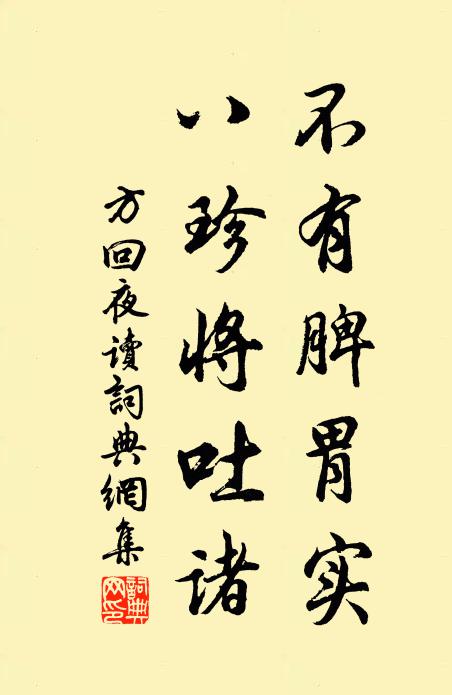 不有脾胃实
八珍将吐诸
方回夜读詞典網集
詞典网印